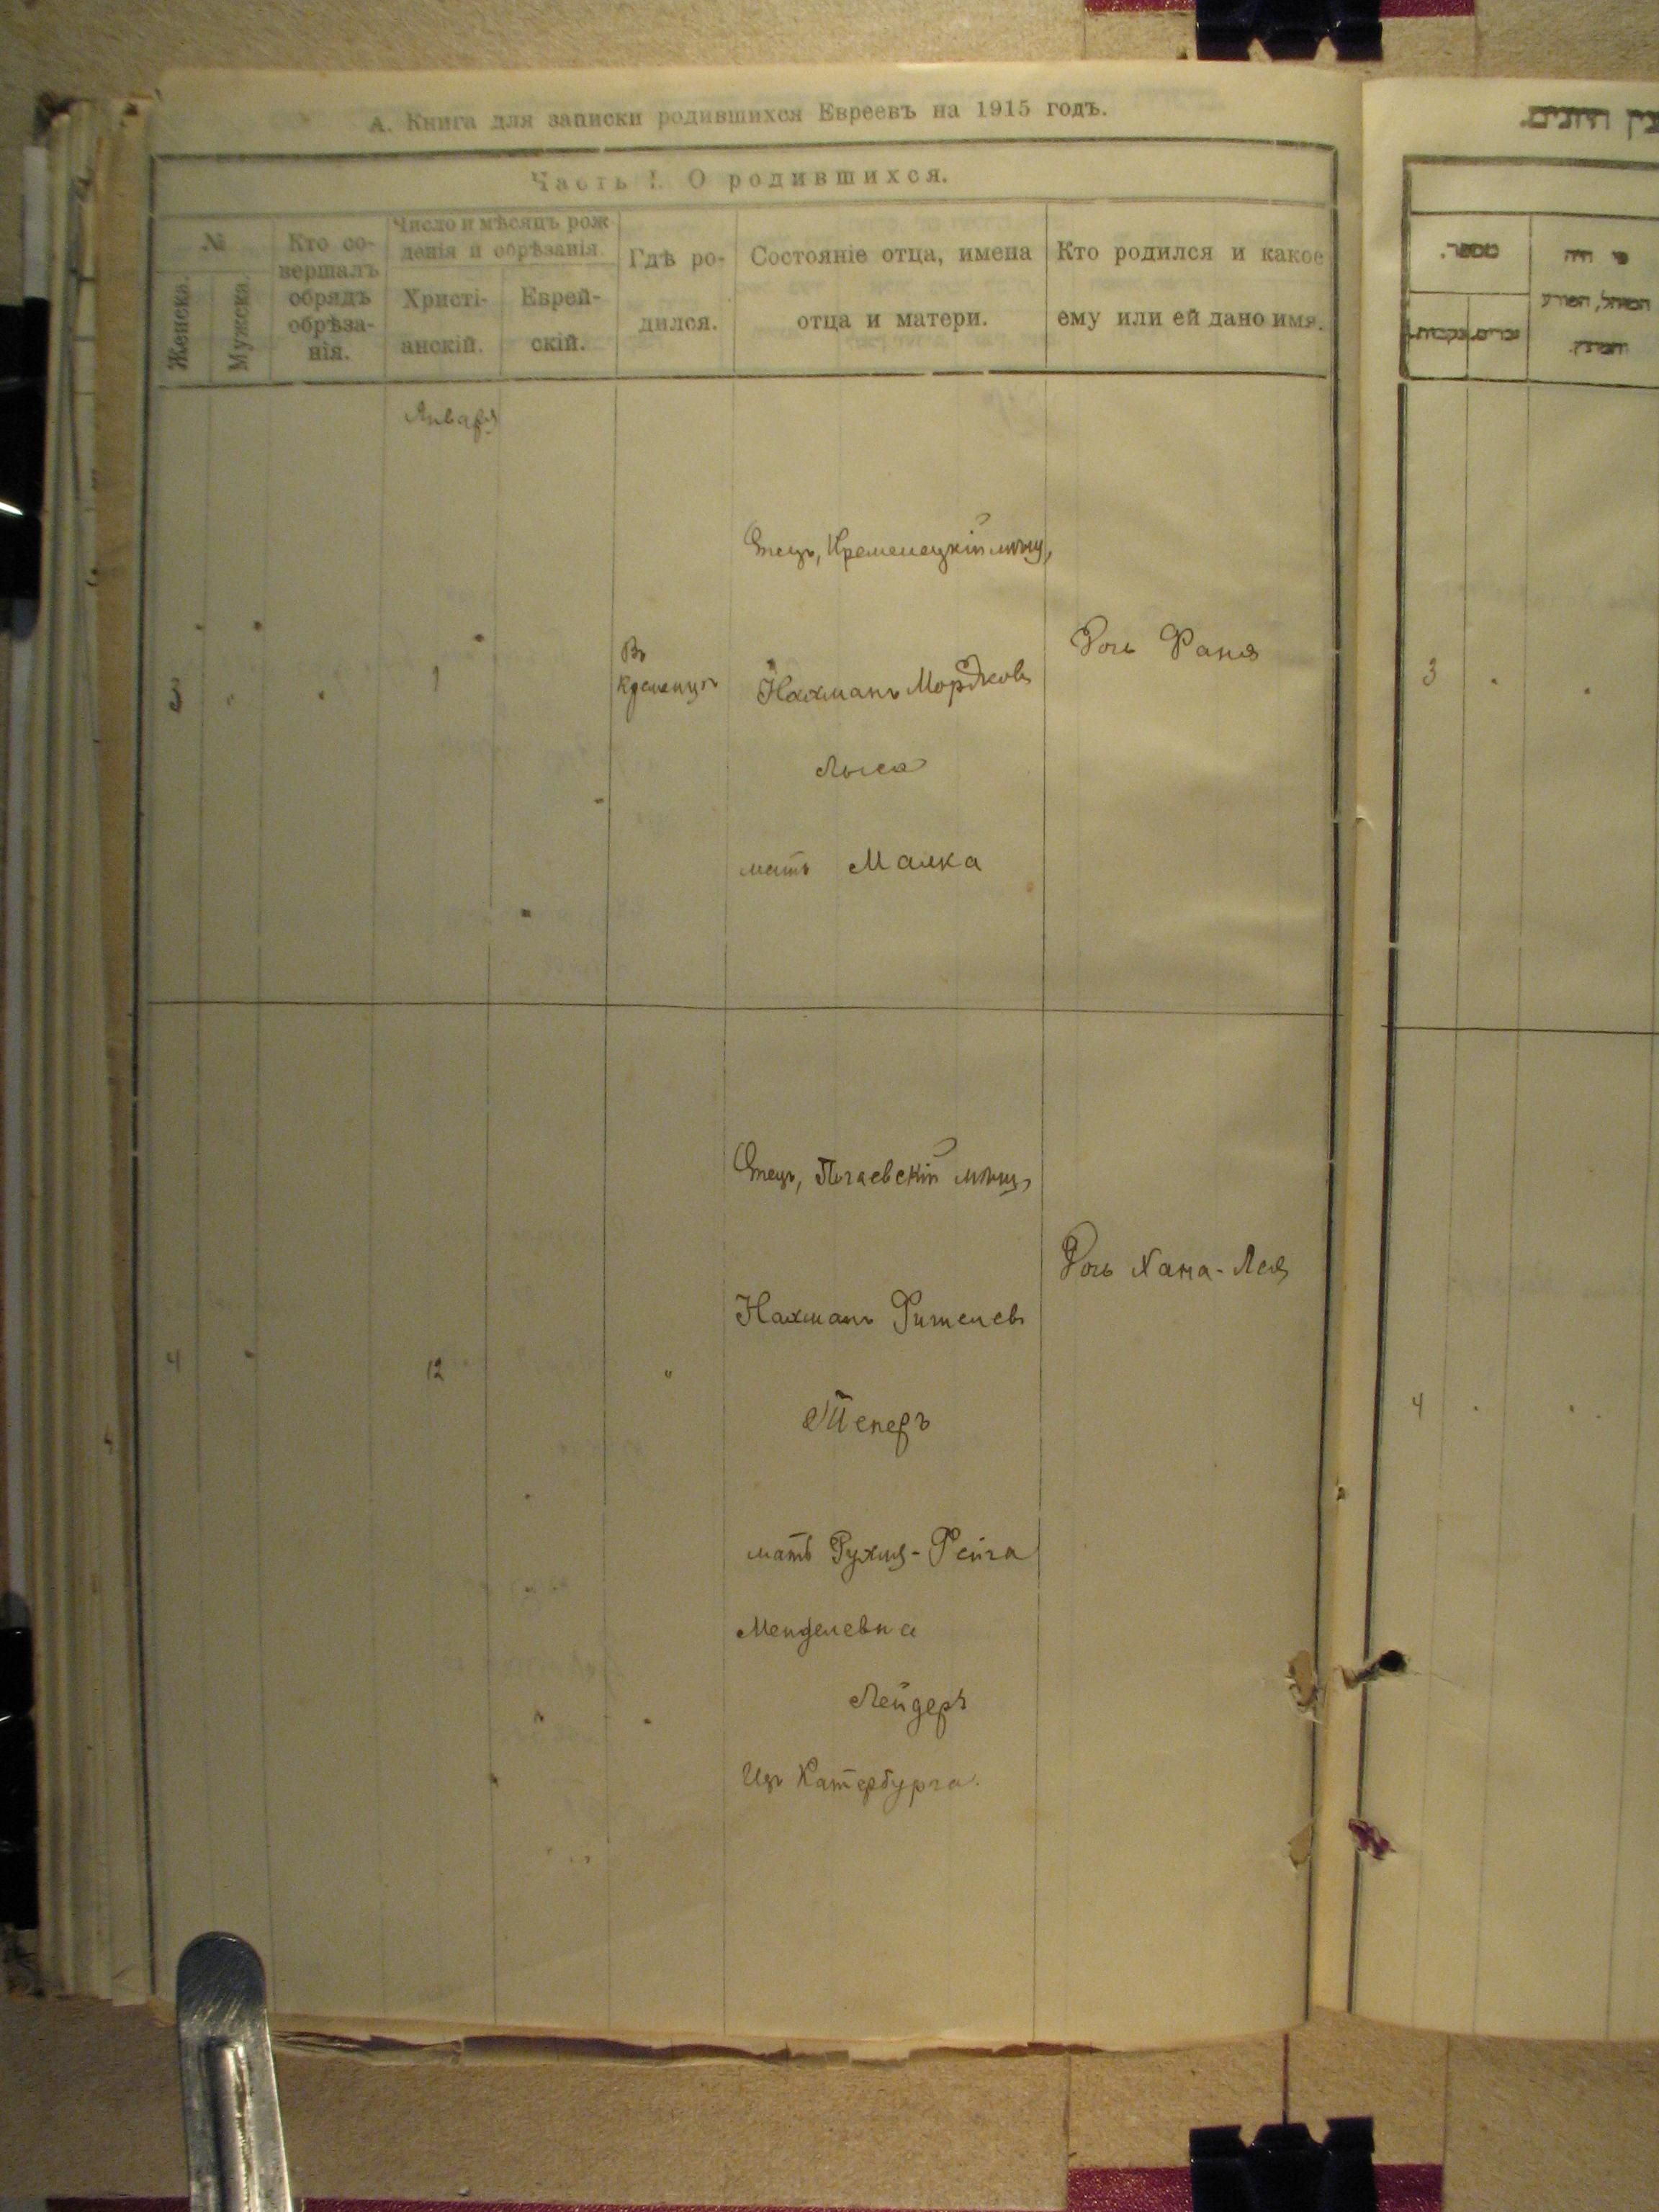 А. Книга для записки родившихся Евреевъ на 1915 годъ.
Часть I. О родившихся.
№
Женска.
Мужска.
Кто со-
вершалъ
обрядъ
обрѣза-
нія.
Число и мѣсяцъ рож
денія и обрѣзанія.
Христі-
анскій.
Еврей-
скій.
Гдѣ ро-
дился.
Состояніе отца, имена
отца и матери.
Кто родился и какое
ему или ей дано имя.
Января
3
1
Въ
Кременцѣ
Отецъ, Кременецкій мѣщ,
Нахманъ Мордков
Лыса
мать Малка
Дочь Фаня
4
12
"
Отецъ, Почаевскій мѣщ,
Нахманъ
Теперъ
мать Рухля-Фейга
Менделевна
Лейдеръ
Изъ Катербурга.
Дочь Хана-Лея
מספר.
זכרים
נקבות.
מי היה
המוהל, הפורע
3
4